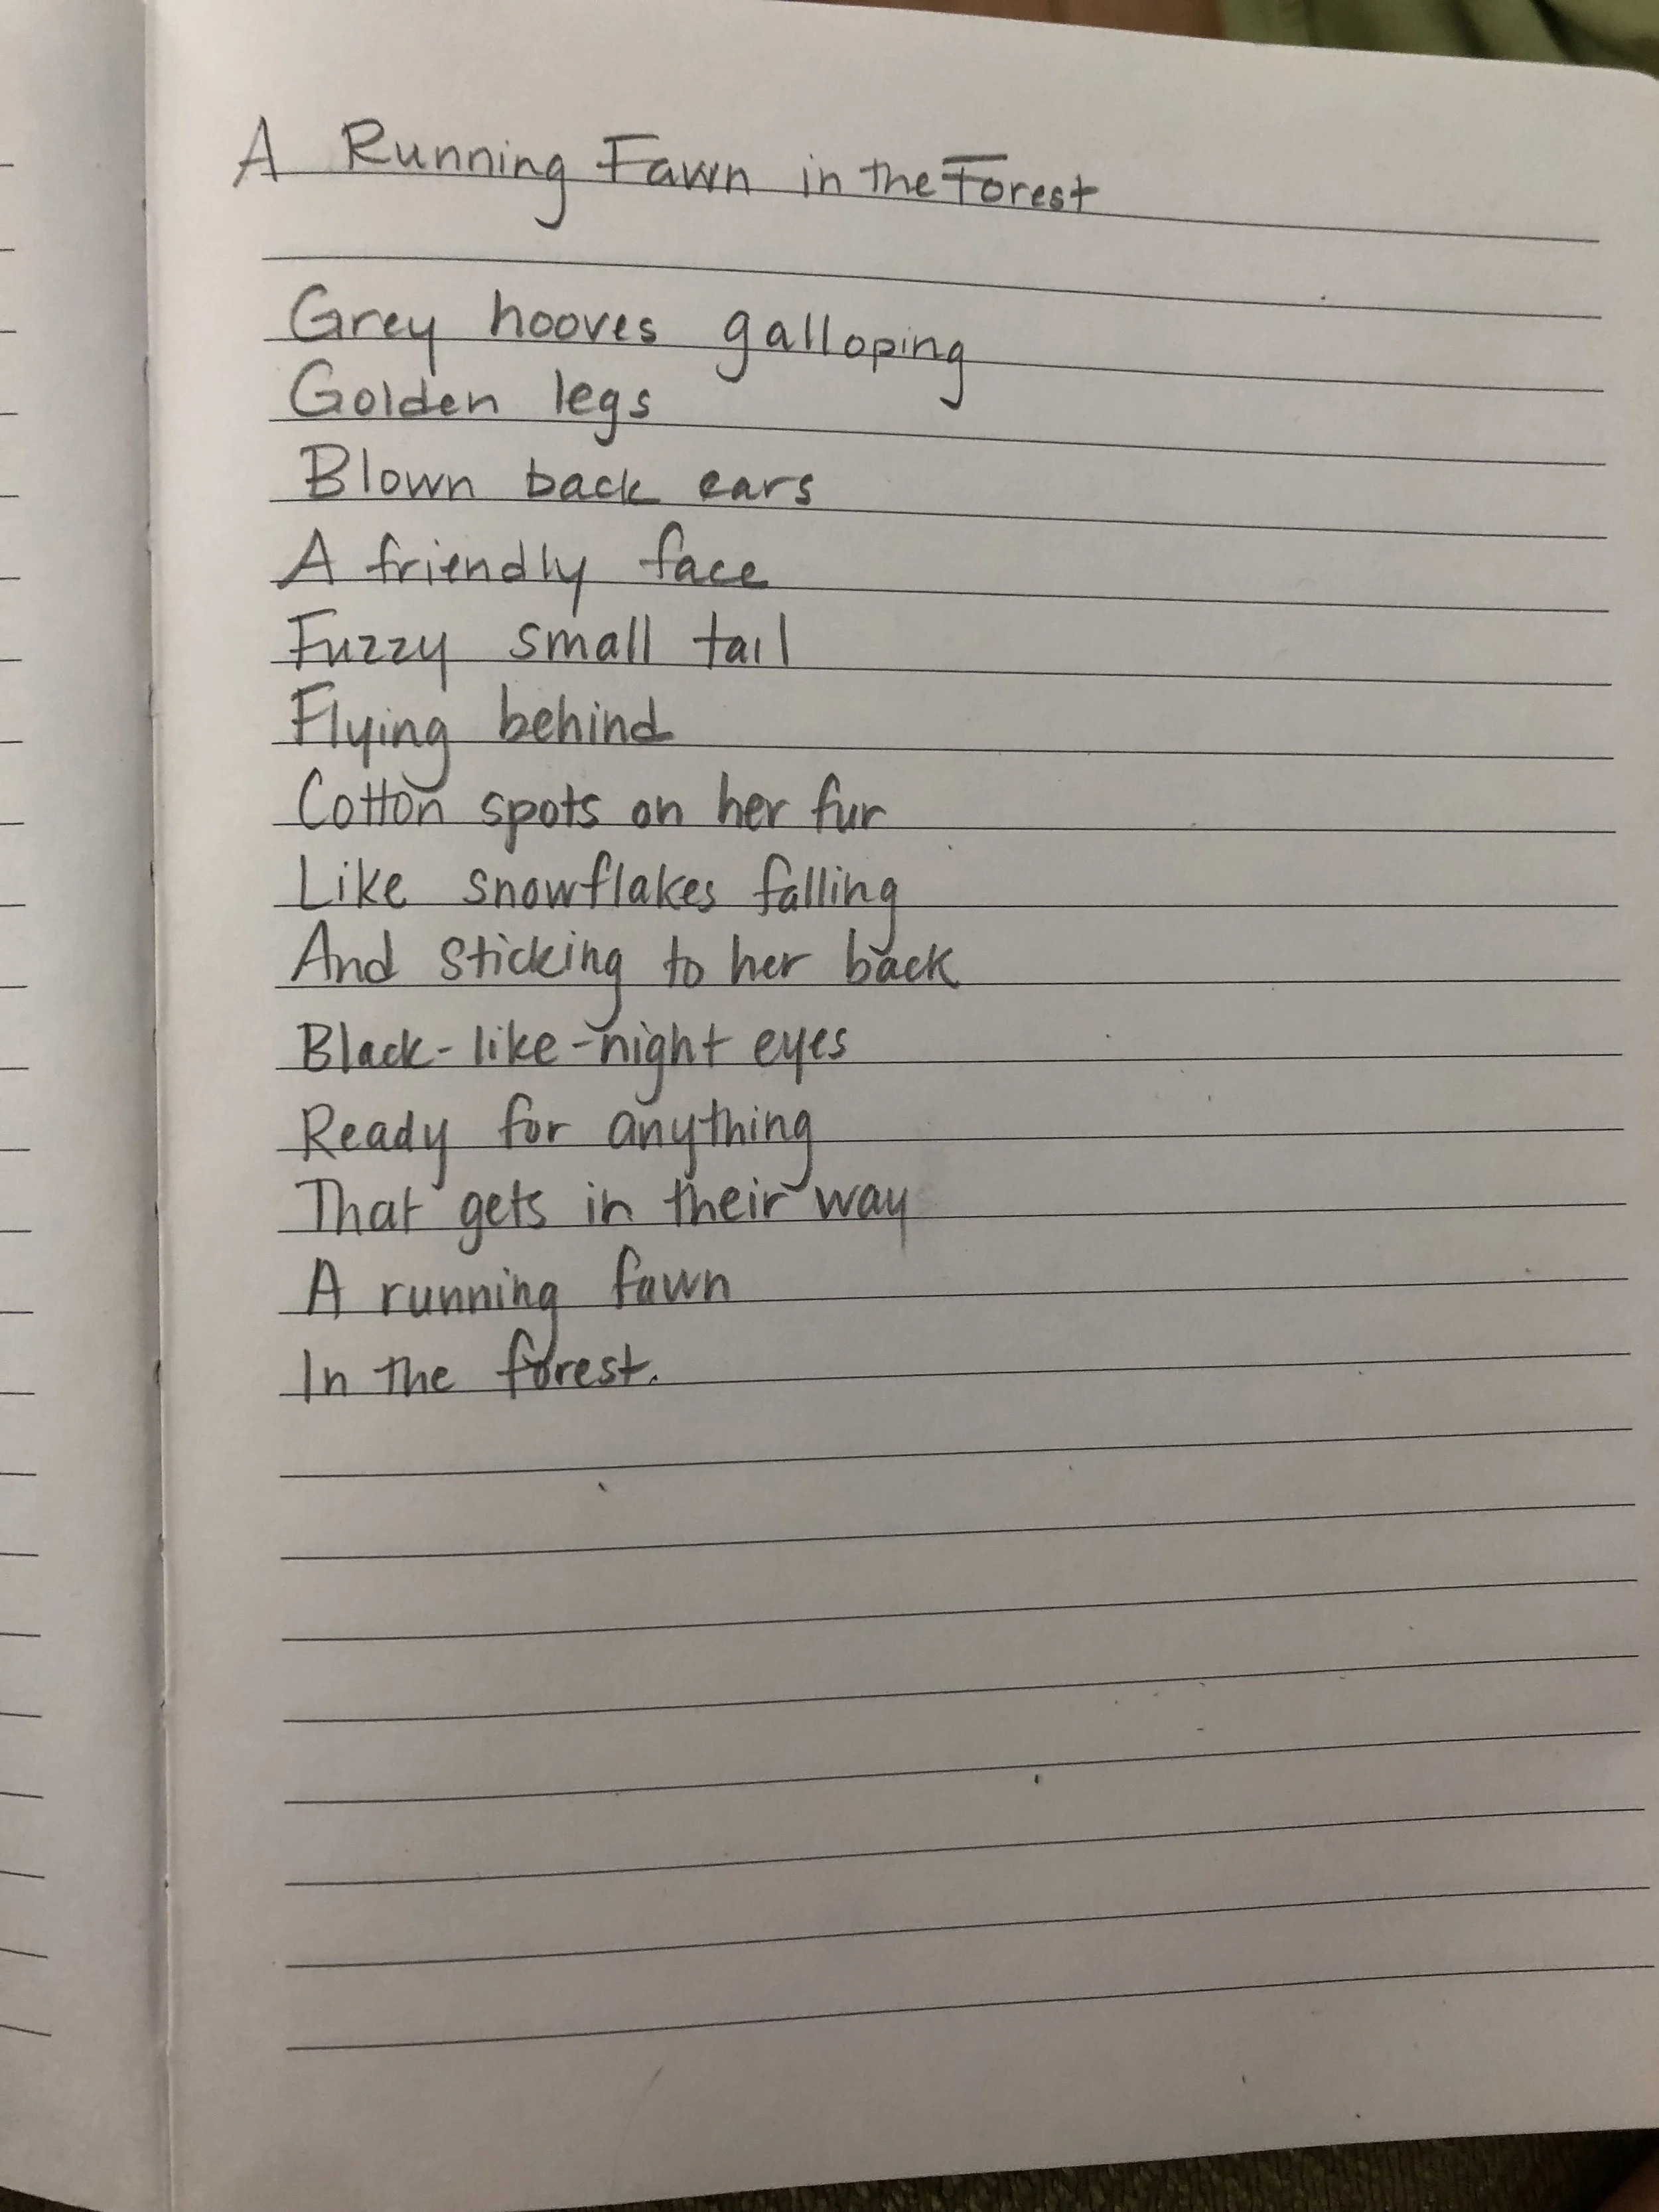 A Running Fawn in the Forest
Grey hooves galloping
Golden legs
Blown back ears
A friendly face
Fuzzy small tail
Flying behind
Cotton spots on her fur
Like snowflakes falling
And sticking to her back
Black-like-night eyes
Ready for anything
That gets in their way
A running fawn
In the forest.